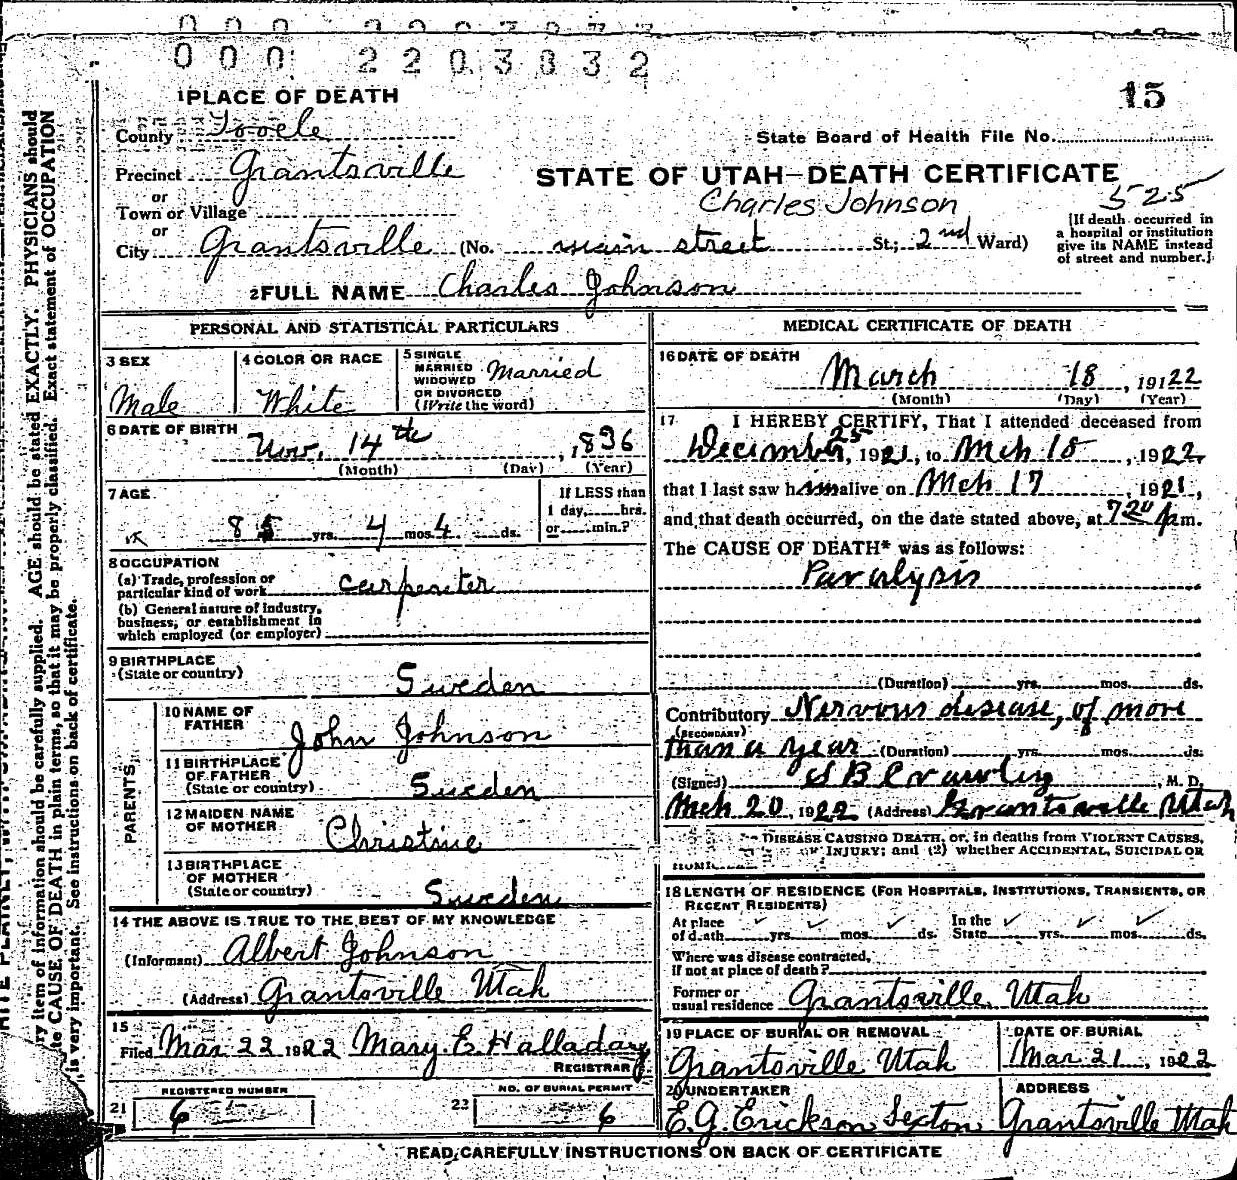 0 0 0 2 2 0 3 8 3 2
15
1 PLACE OF DEATH
County Tooele
State Board of Health File No.
Precinct Grantsville
STATE OF UTAH—DEATH CERTIFICATE
or
Town or Village
Charles Johnson
525
or
City Grantsville (No. main street St.; 2nd Ward)
[If death occurred in
a hospital or institution
give its NAME instead
of street and number.]
2 FULL NAME Charles Johnson
PERSONAL AND STATISTICAL PARTICULARS
3 SEX
Male
4 COLOR OR RACE
White
5 SINGLE
MARRIED
WIDOWED
OR DIVORCED
(Write the word)
Married
6 DATE OF BIRTH
Nov. 14th, 1836
(Month) (Day) (Year)
7 AGE
85 yrs. 4 mos. 4 ds.
If LESS than
1 day, hrs.
or min.?
8 OCCUPATION
(a) Trade, profession or
particular kind of work carpenter
(b) General nature of industry,
business, or establishment in
which employed (or employer)
9 BIRTHPLACE
(State or country)
Sweden
PARENTS
10 NAME OF
FATHER
John Johnson
11 BIRTHPLACE
OF FATHER
(State or country)
Sweden
12 MAIDEN NAME
OF MOTHER
Christine
13 BIRTHPLACE
OF MOTHER
(State or country)
Sweden
14 THE ABOVE IS TRUE TO THE BEST OF MY KNOWLEDGE
(Informant) Albert Johnson
(Address) Grantsville Utah
15
Filed Mar 22 1922 Mary E Halladay
REGISTRAR
REGISTERED NUMBER
21 6
NO. OF BURIAL PERMIT
22 6
MEDICAL CERTIFICATE OF DEATH
16 DATE OF DEATH
March 18, 19122
(Month) (Day) (Year)
17 I HEREBY CERTIFY, That I attended deceased from
December 25, 1921, to Mch 18, 1922,
that I last saw him alive on Mch 17, 1921,
and that death occurred, on the date stated above, at 7 20 p m.
The CAUSE OF DEATH* was as follows:
Paralysis
(Duration) yrs. mos. ds.
Contributory Nervous disease, of more
(SECONDARY)
than a year (Duration) yrs. mos. ds.
(Signed) , M. D.
Mch 20, 1922 (Address) Grantsville Utah
DISEASE CAUSING DEATH, or, in deaths from VIOLENT CAUSES,
INJURY; and (2) whether ACCIDENTAL, SUICIDAL OR
18 LENGTH OF RESIDENCE (FOR HOSPITALS, INSTITUTIONS, TRANSIENTS, OR
RECENT RESIDENTS)
At place
of death yrs. mos. ds.
In the
State yrs. mos. ds.
Where was disease contracted,
if not at place of death?
Former or
usual residence Grantsville, Utah
19 PLACE OF BURIAL OR REMOVAL
Grantsville Utah
DATE OF BURIAL
Mar 21, 1922
20 UNDERTAKER
E.G. Erickson Sexton
ADDRESS
Grantsville Utah
READ CAREFULLY INSTRUCTIONS ON BACK OF CERTIFICATE
item of information should be carefully supplied. AGE should be stated EXACTLY. PHYSICIANS should
CAUSE OF DEATH in plain terms, so that it may be properly classified. Exact statement of OCCUPATION
is very important. See instructions on back of certificate.